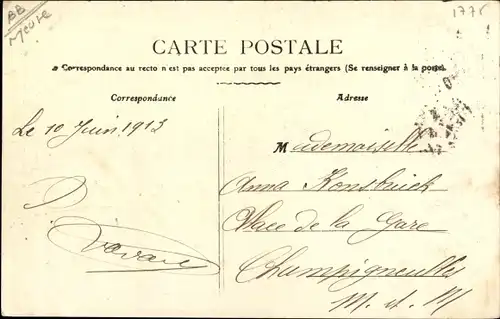 BB
Meuse
1775
CARTE POSTALE
La Correspondance au recto n'est pas acceptée par tous les pays étrangers (Se renseigner à la poste).
Correspondance
Adresse
Le 10 Juin 1913
Mademoiselle
Anna
Place de la Gare
Champigneulles
M. et M